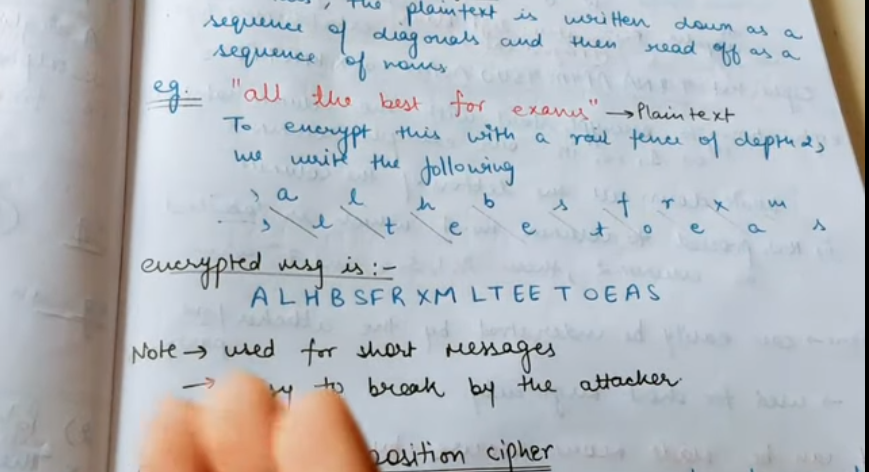 the plaintext is written down as a
sequence of diagonals and then read off as a
sequence of rows
eg. "all the best for exams" → Plaintext
To encrypt this with a rail fence of depth 2,
we write the following
, a l h b s f r x m
, l t e e t o e a s
encrypted msg is:-
A L H B S F R X M L T E E T O E A S
Note → used for short messages
→ to break by the attacker.
position cipher